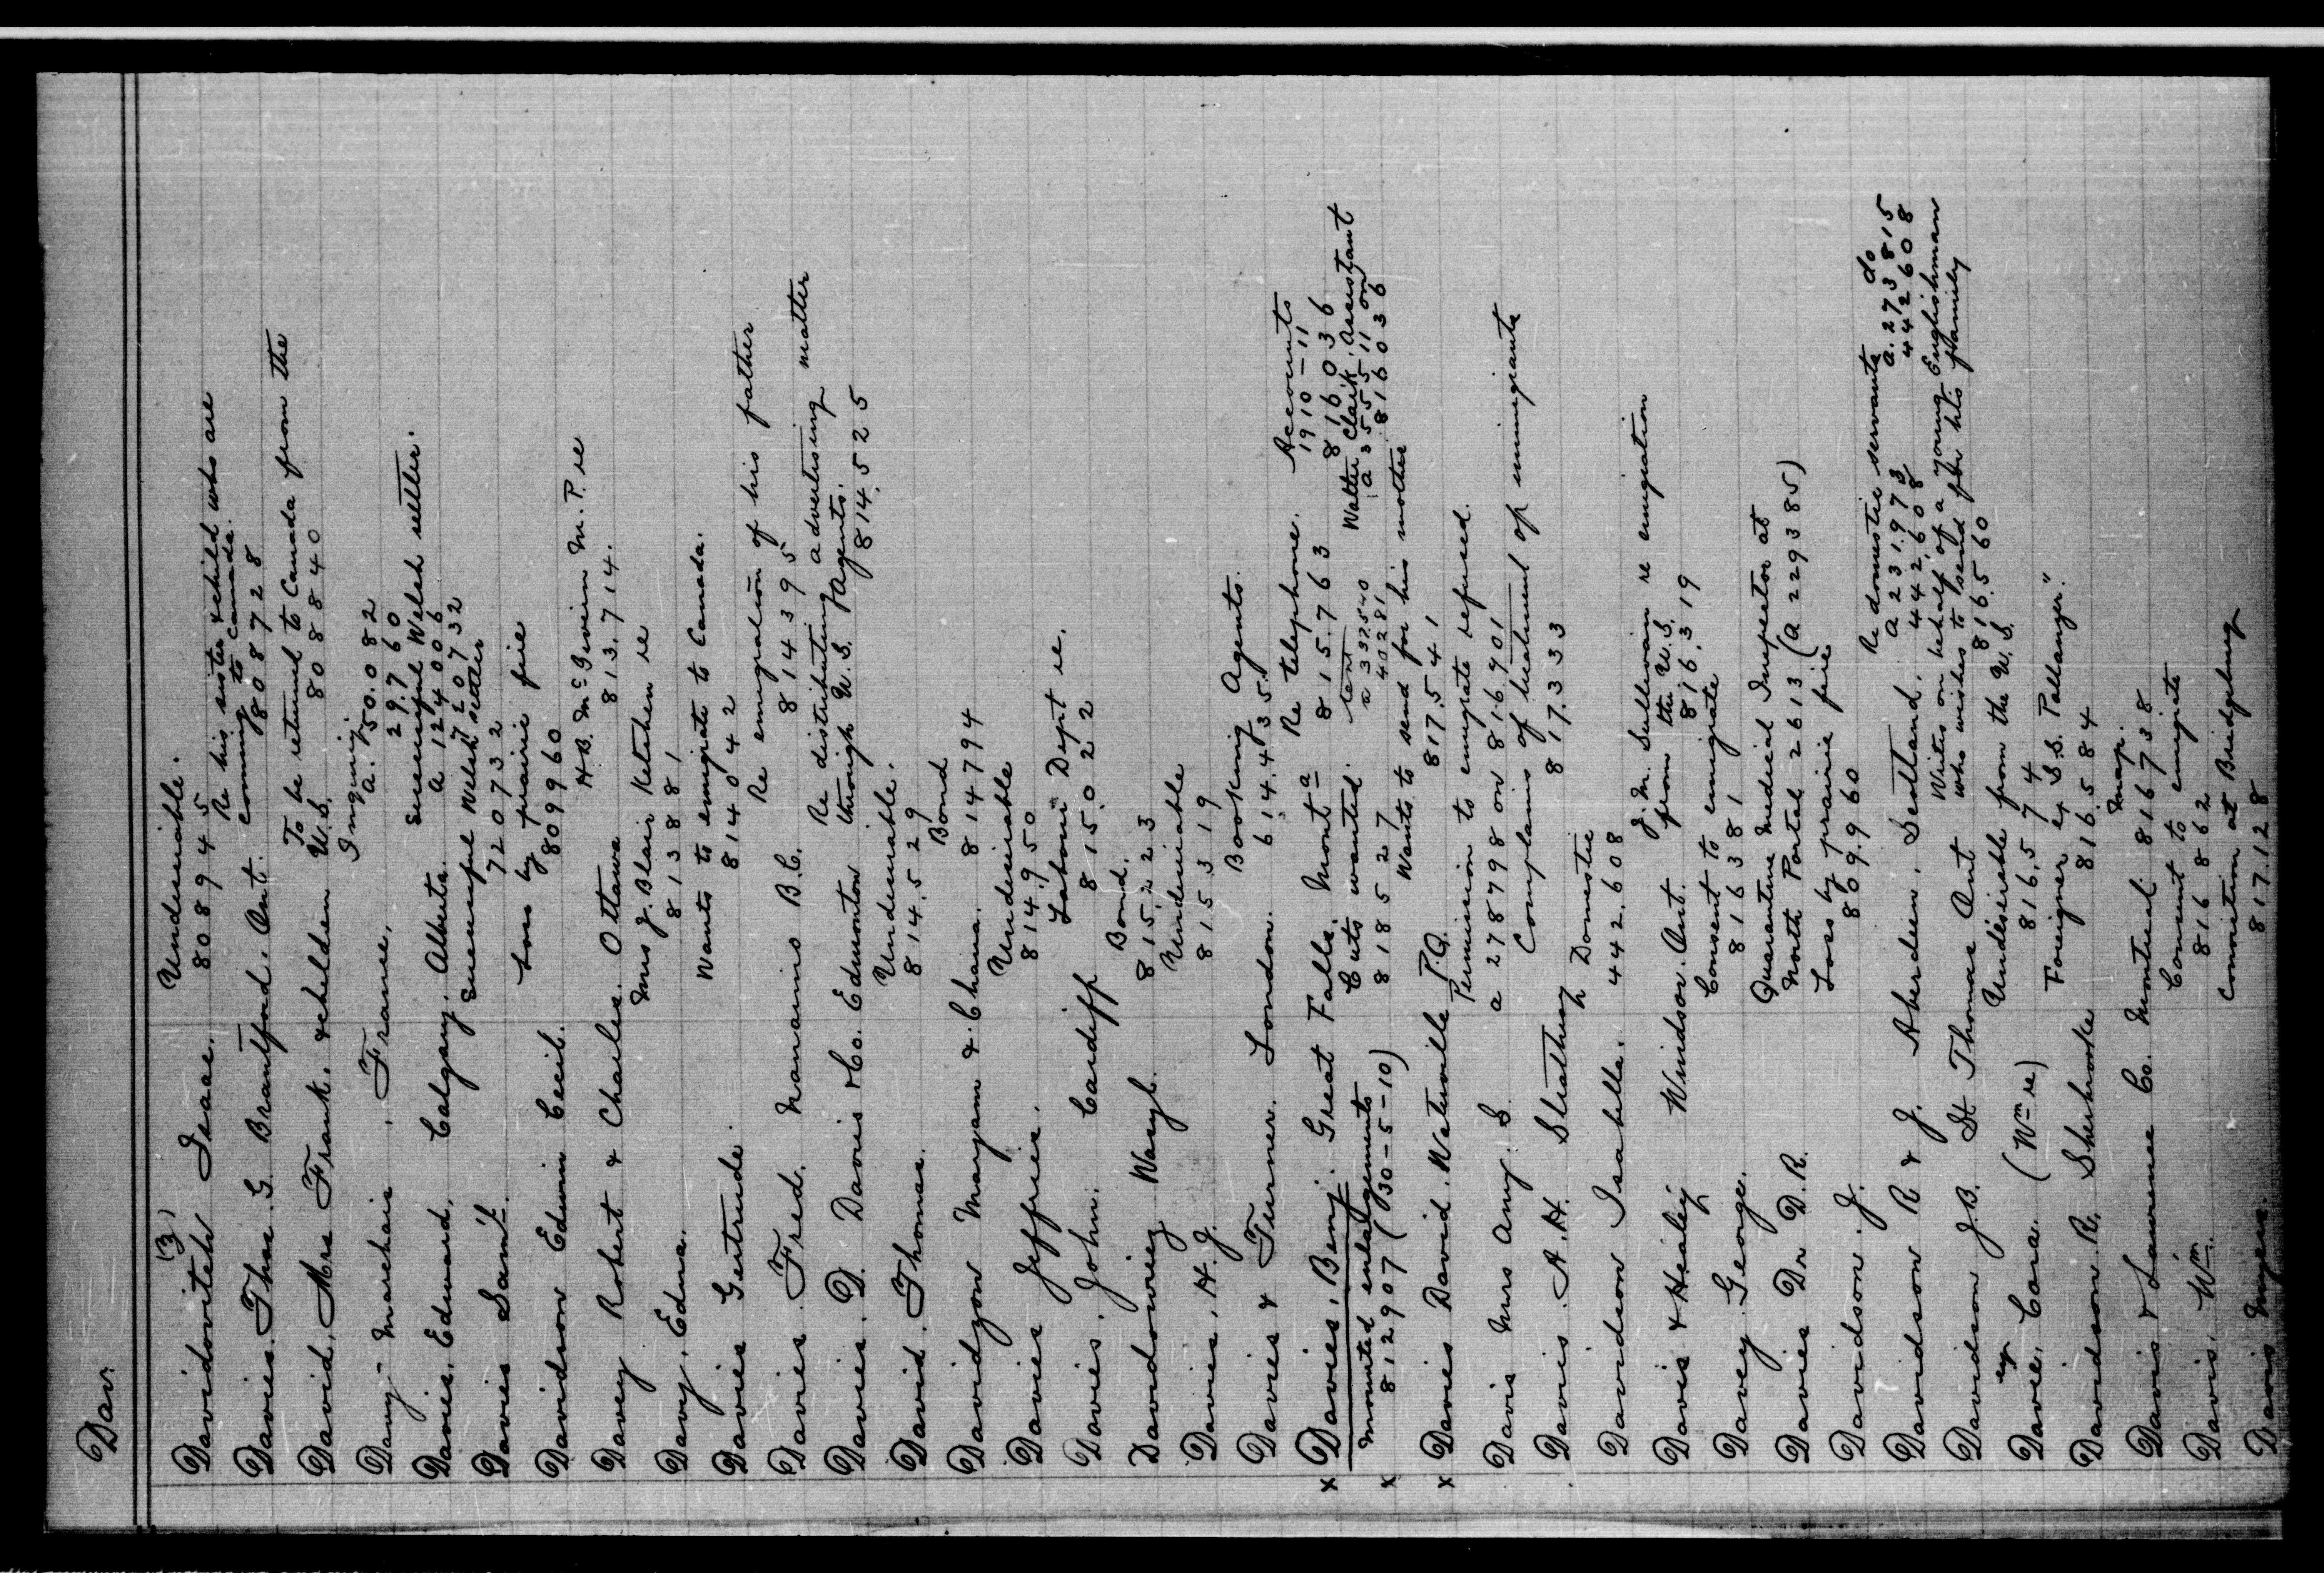 Dav.
(3)
Undesirable.
Davidovitch Isaac. 808945
Re his sister & child who are
coming to Canada.
Davies. Thos. G. Brantford. Ont. 808728
To be returned to Canada from the
David. Mrs Frank. & children U.S. 808840
Inquiry
a. 50.082
Davy-Marchais. France. 29.760
Successful Welsh settler.
a 124006
Davies. Edward. Calgary. Alberta. 720732
Successful Welsh settler
Davies Saml. 720732
Loss by prairie fire
Davidson Edwin Cecil. 809960
H.B. McGivern M.P. re
Davey Robert & Charles. Ottawa 813.714.
Mrs J. Blair Ketchen re
Davy. Edna. 813881
Wants to emigrate to Canada.
Davies Gertrude. 814042
Re emigration of his father
Davies. Fred. Nanaimo B.C. 814395
Re distributing advertising matter
through U.S. Agents.
Davies. D. Davies & Co. Edmonton 814525
Undesirable.
David. Thomas. 814.529
Bond
Davidzon Maryam & Chana. 814794
Undesirable
Davies Jeffries. 814.950
Labour Dept re.
Davies. John. Cardiff 815.022
Bond.
815.223
Undesirable
Davies. H. J. 815319
Booking Agents.
Davies & Turner. London. 614.435
Re telephone. Accounts
1910-11
x Davies. Benj. Great Falls. Monta 815.763 816036
Cuts wanted. tent Walter Clark. Assistant
Mounted enlargements a 332540 a 355511 on
x 812907 (30-5-10) 818527 40281 816036
Wants to send for his mother
x Davies David. Waterville P.Q. 817.541
Permission to emigrate refused.
Davis Mrs Amy. S. a 278798 on 816.901
Complains of treatment of immigrants
Davis. A.H. 817.333
Domestic
Davidson Isabella. 442.608
J.M. Sullivan re emigration
from the U.S.
Davis & Healey Windsor. Ont. 816.319
Consent to emigrate
Davey. George. 816381
Quarantine Medical Inspector at
Davies Dr D.R. North Portal 2613 (a 229385)
Loss by prairie fire
Davidson. J. 809.960
Re domestic servants do
a 231.973 a. 273815
Davidson R & J. Aberdeen. Scotland. 442.608 442608
Writes on behalf of a young Englishman
who wishes to send for his family
Davidson J.B. St Thomas Ont 816.560
Undesirable from the U.S.
Cora. (Wm re) 816.574
Foreigner ex S.S. "Pallanza."
Davidson. R. Sherbrooke 816.584
Map.
Davis & Lawrence Co. Montreal 816738
Consent to emigrate
Davis. Wm. 816862
Conviction at Bridgeburg
Davis 817.128